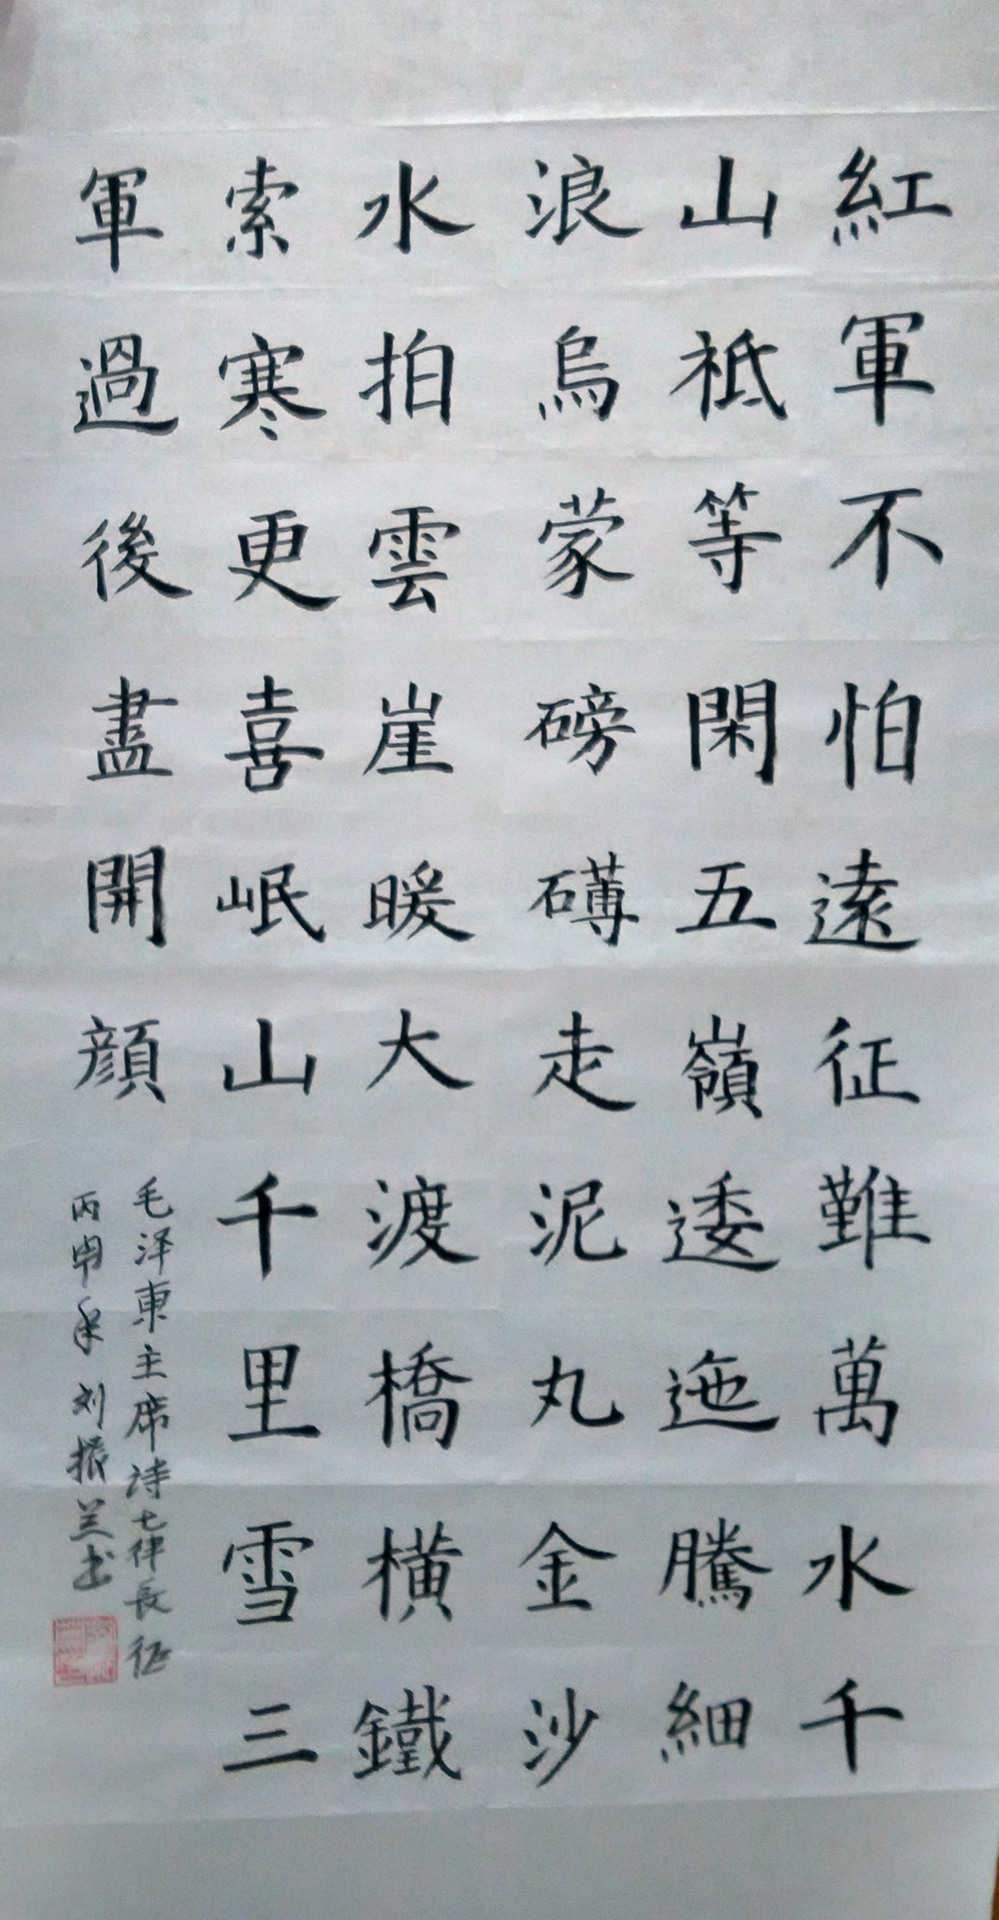 紅軍不怕遠征難萬水千
山祗等閑五嶺逶迤騰細
浪烏蒙磅礡走泥丸金沙
水拍雲崖暖大渡橋橫鐵
索寒更喜岷山千里雪三
軍過後盡開顔
毛泽東主席诗七律長征
丙申年刘振兰书